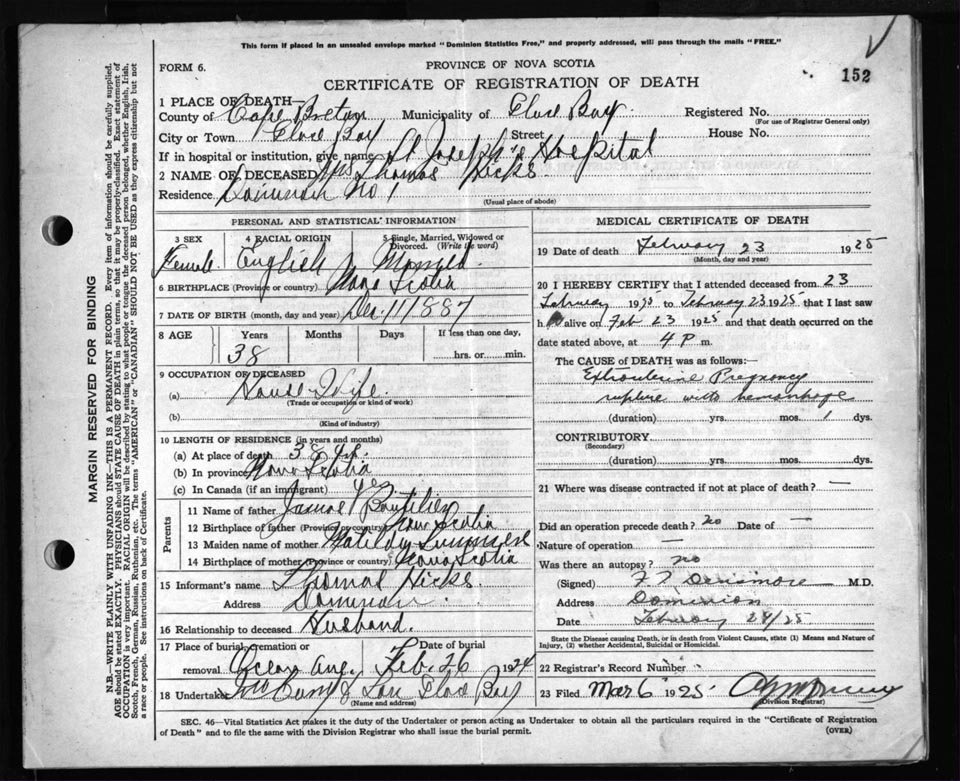 This form if placed in an unsealed envelope marked "Dominion Statistics Free," and properly addressed, will pass through the mails "FREE."
FORM 6.
PROVINCE OF NOVA SCOTIA
152
CERTIFICATE OF REGISTRATION OF DEATH
1 PLACE OF DEATH—
County of Cape Breton Municipality of Glace Bay Registered No.
(For use of Registrar General only)
City or Town Glace Bay Street House No.
If in hospital or institution, give name St Joseph's Hospital
2 NAME OF DECEASED Mrs Thomas Hicks
Residence Dominion No 1
(Usual place of abode)
PERSONAL AND STATISTICAL INFORMATION
3 SEX 4 RACIAL ORIGIN 5 Single, Married, Widowed or Divorced. (Write the word)
Female English Married
6 BIRTHPLACE (Province or country) Nova Scotia
7 DATE OF BIRTH (month, day and year) Dec. 11 1887
8 AGE Years Months Days If less than one day,
38 hrs. or min.
9 OCCUPATION OF DECEASED
(a) House Wife
(Trade or occupation or kind of work)
(b)
(Kind of industry)
10 LENGTH OF RESIDENCE (in years and months)
(a) At place of death 38 yr.
(b) In province Nova Scotia
(c) In Canada (if an immigrant) yes
Parents
11 Name of father James Boutilier
12 Birthplace of father (Province or country) Nova Scotia
13 Maiden name of mother Matilda
14 Birthplace of mother (Province or country) Nova Scotia
15 Informant's name Thomas Hicks
Address Dominion
16 Relationship to deceased Husband.
17 Place of burial, cremation or Date of burial
removal Ocean Ave. Feb. 26 1924
18 Undertaker Glace Bay
(Name and address)
MEDICAL CERTIFICATE OF DEATH
19 Date of death February 23 1925
(Month, day and year)
20 I HEREBY CERTIFY that I attended deceased from 23
February 1925 to February 23 1925 that I last saw
h alive on Feb 23 1925 and that death occurred on the
date stated above, at 4 P m.
The CAUSE OF DEATH was as follows:—
Extrauterine Pregnancy
rupture with hemorrhage
(duration) yrs. mos. 1 dys.
CONTRIBUTORY
(Secondary)
(duration) yrs. mos. dys.
21 Where was disease contracted if not at place of death? —
Did an operation precede death? no Date of —
Nature of operation —
Was there an autopsy? no
(Signed) M.D.
Address Dominion
Date February 28/25
State the Disease causing Death, or in death from Violent Causes, state (1) Means and Nature of
Injury, (2) whether Accidental, Suicidal or Homicidal.
22 Registrar's Record Number
23 Filed Mar 6 1925
(Division Registrar)
SEC. 46—Vital Statistics Act makes it the duty of the Undertaker or person acting as Undertaker to obtain all the particulars required in the "Certificate of Registration
of Death" and to file the same with the Division Registrar who shall issue the burial permit.
(OVER)
MARGIN RESERVED FOR BINDING
N.B.—WRITE PLAINLY WITH UNFADING INK—THIS IS A PERMANENT RECORD. Every item of information should be carefully supplied.
AGE should be stated EXACTLY. PHYSICIANS should STATE CAUSE OF DEATH in plain terms, so that it may be properly classified. Exact statement of
OCCUPATION is very important. RACIAL ORIGIN will be described by stating to what people or tongue the deceased person belonged, whether English, Irish,
Scotch, French, German, Russian, Ruthenian, etc. The terms "AMERICAN" or "CANADIAN" SHOULD NOT BE USED as they express citizenship but not
a race or people. See instructions on back of Certificate.